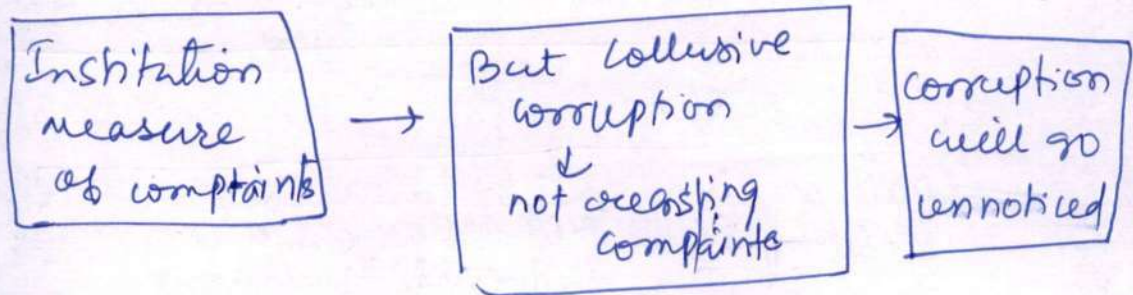 Institution
measure
of complaints
→
But collusive
corruption
↓
not
complaints
→
corruption
will go
unnoticed